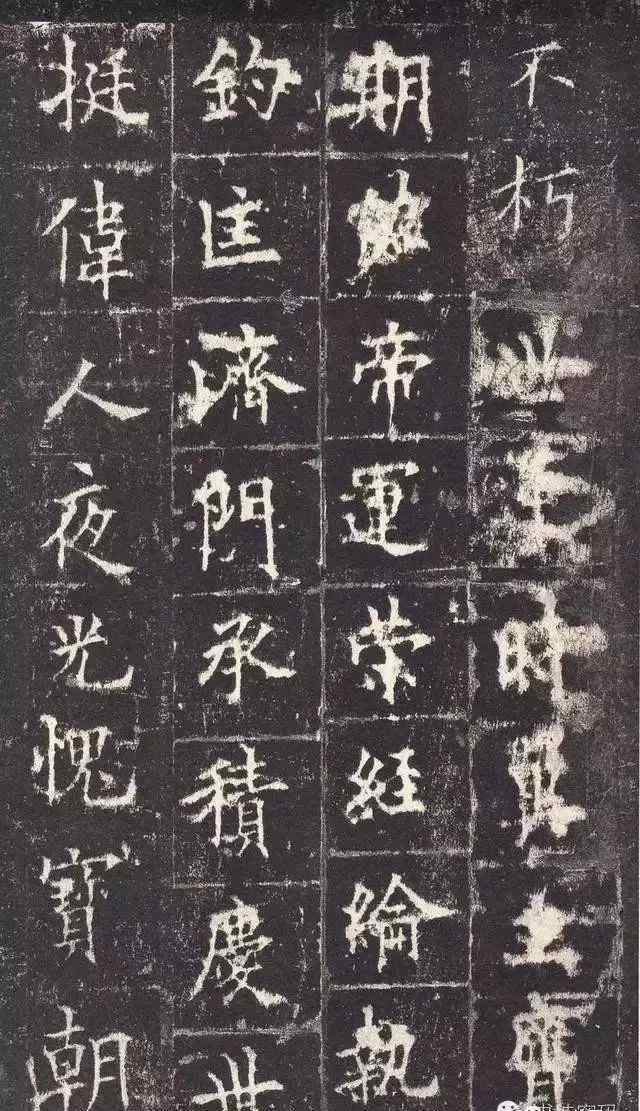 不朽時
期帝運荣經綸執
鈞匡濟門承積慶世
挺偉人夜光愧寶朝